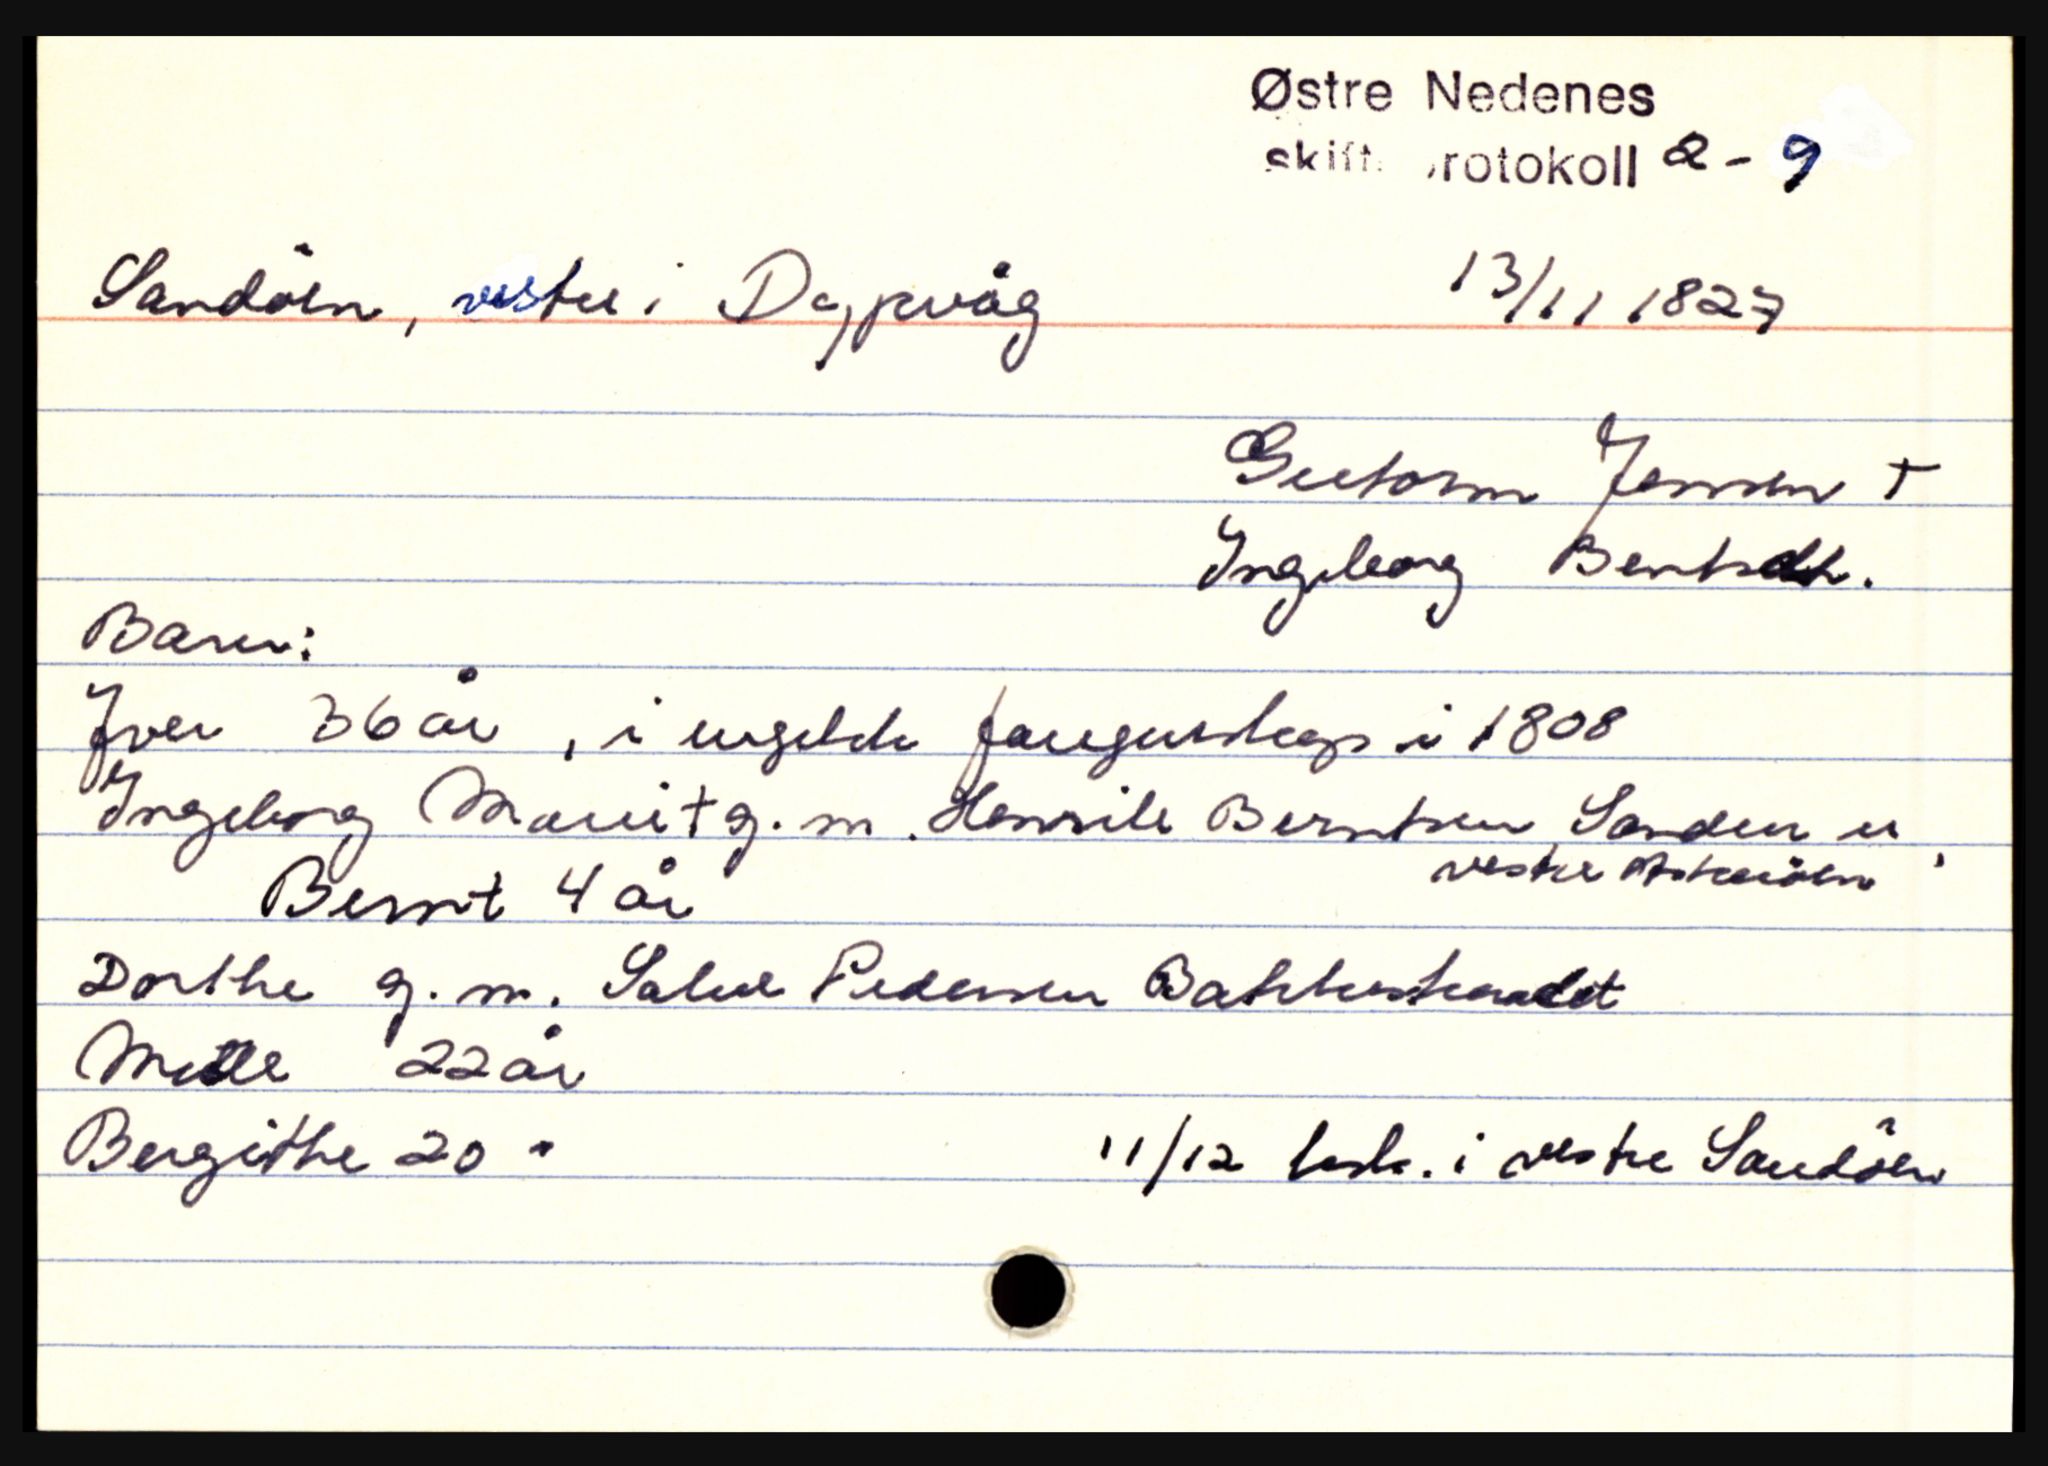 Østre Nedenes
skifteprotokoll 2-9
Sandöen, vestre i Dypvåg 13/11 1827
Guttorm Jensen †
Ingeborg Bentsdtr.
Barn:
Iver 36 år, i engelsk fangenskap i 1808
Ingeborg Marie † g. m. Henrik Berntsen Sanden u
vestre Askeröen
Bernt 4 år
Dorthe g. m. Salve Pedersen
Mette 22 år
Bergithe 20 "
11/12 i vestre Sandöen